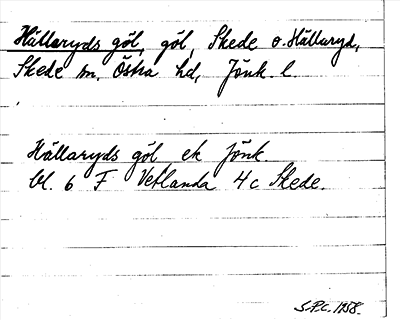 Hällaryds göl, göl, Skede o. Hällaryd,
Skede sn, Östra hd, Jönk. l.
Hällaryds göl ek Jönk.
bl. 6 F Vetlanda 4c Skede.
S.P.c. 1958.